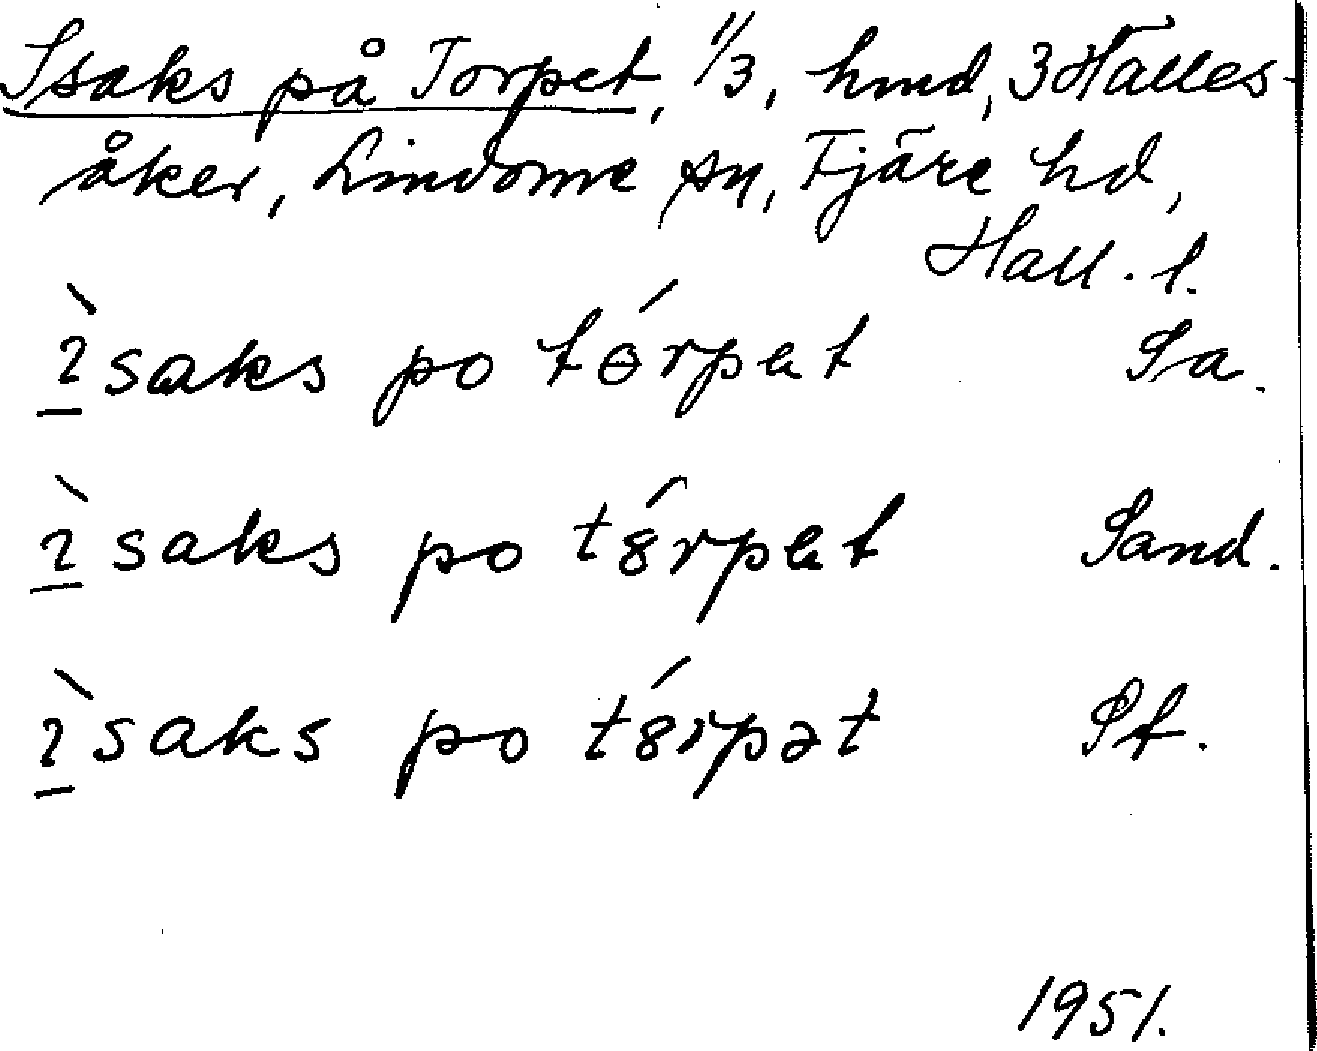 Isaks på Torpet, 1/3, hmd, 3 Hälles-
åker, Lindome sn, Fjäre hd,
Hall. l.
ı̱̀saks po tɵ́rpet Sa.
ı̱̀saks po t8́rpet Sand.
ı̱̀saks po t8́rpət Pf.
1951.